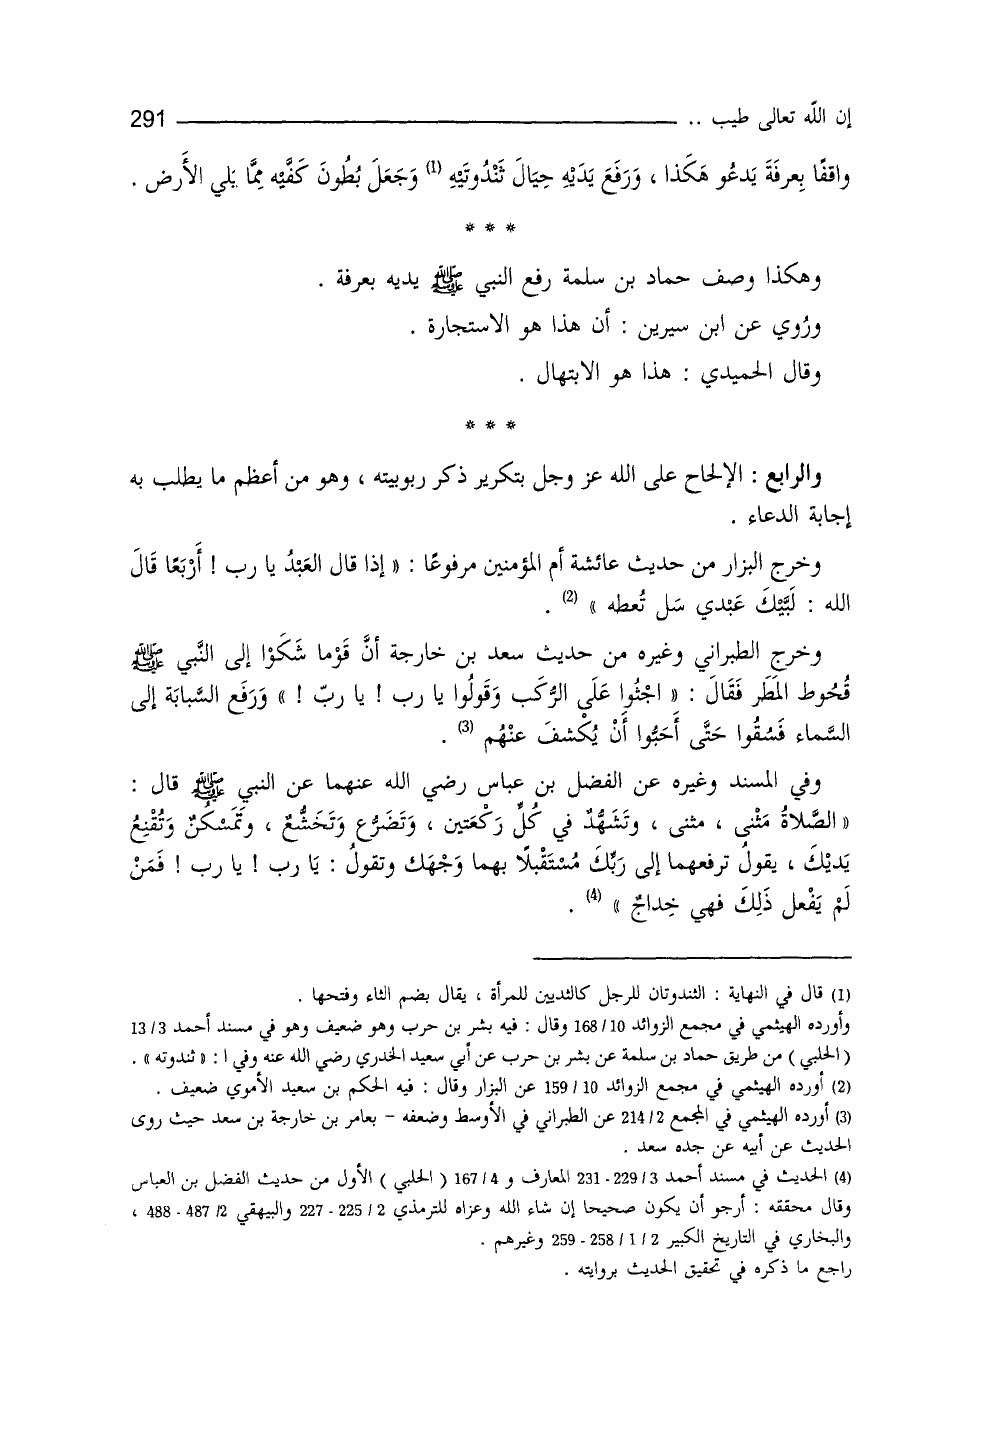 إن الله تعالى طيب .. 291
واقفًا بِعرفَةَ يَدعُو هَكَذا ، وَرَفَعَ يَدَيْهِ حِيَالَ ثَنْدُوتَيْهِ (1) وَجَعَلَ بُطُونَ كَفَّيْه مِمَّا يَلي الأَرض .
* * *
وهكذا وصف حماد بن سلمة رفع النبي ﷺ يديه بعرفة .
ورُوي عن ابن سيرين : أن هذا هو الاستجارة .
وقال الحميدي : هذا هو الابتهال .
* * *
والرابع : الإلحاح على الله عز وجل بتكرير ذكر ربوبيته ، وهو من أعظم ما يطلب به
إجابة الدعاء .
وخرج البزار من حديث عائشة أم المؤمنين مرفوعًا : « إذا قال العَبْدُ يا رب ! أَرْبَعًا قَالَ
الله : لَبَّيْكَ عَبْدي سَل تُعطه » (2) .
وخرج الطبراني وغيره من حديث سعد بن خارجة أنَّ قَوْما شَكَوْا إلى النَّبي ﷺ
قُحُوط المَطَر فَقَالَ : « اجْثُوا عَلَى الرُّكَب وَقُولُوا يا رب ! يا ربّ ! » وَرَفَع السَّبابَة إلى
السَّماء فَسُقُوا حَتَّى أَحَبُّوا أَنْ يُكْشفَ عنْهُم (3) .
وفي المسند وغيره عن الفضل بن عباس رضي الله عنهما عن النبي ﷺ قال :
« الصَّلاةُ مَثْنى ، مثنى ، وتَشَهُّدٌ في كُلِّ رَكْعَتين ، وَتَضَرُّع وَتَخَشُّعٌ ، وتَمَسْكُنٌ وَتُقْنِعُ
يَديْكَ ، يقولُ ترفعهما إلى رَبِّكَ مُسْتَقْبلًا بهما وَجْهَك وتقولُ : يَا رب ! يا رب ! فَمَنْ
لَمْ يَفْعل ذَلِكَ فهي خِداجٌ » (4) .
(1) قال في النهاية : الثندوتان للرجل كالثديين للمرأة ، يقال بضم الثاء وفتحها .
وأورده الهيثمي في مجمع الزوائد 10/ 168 وقال : فيه بشر بن حرب وهو ضعيف وهو في مسند أحمد 3/ 13
( الحلبي ) من طريق حماد بن سلمة عن بشر بن حرب عن أبي سعيد الخدري رضي الله عنه وفي ا : « ثندوته » .
(2) أورده الهيثمي في مجمع الزوائد 10/ 159 عن البزار وقال : فيه الحكم بن سعيد الأموي ضعيف .
(3) أورده الهيثمي في المجمع 2/ 214 عن الطبراني في الأوسط وضعفه – بعامر بن خارجة بن سعد حيث روى
الحديث عن أبيه عن جده سعد .
(4) الحديث في مسند أحمد 3/ 229 - 231 المعارف و 4/ 167 ( الحلبي ) الأول من حديث الفضل بن العباس
وقال محققه : أرجو أن يكون صحيحا إن شاء الله وعزاه للترمذي 2/ 225 - 227 والبيهقي 2/ 487 - 488 ،
والبخاري في التاريخ الكبير 2/ 1/ 258 - 259 وغيرهم .
راجع ما ذكره في تحقيق الحديث بروايته .